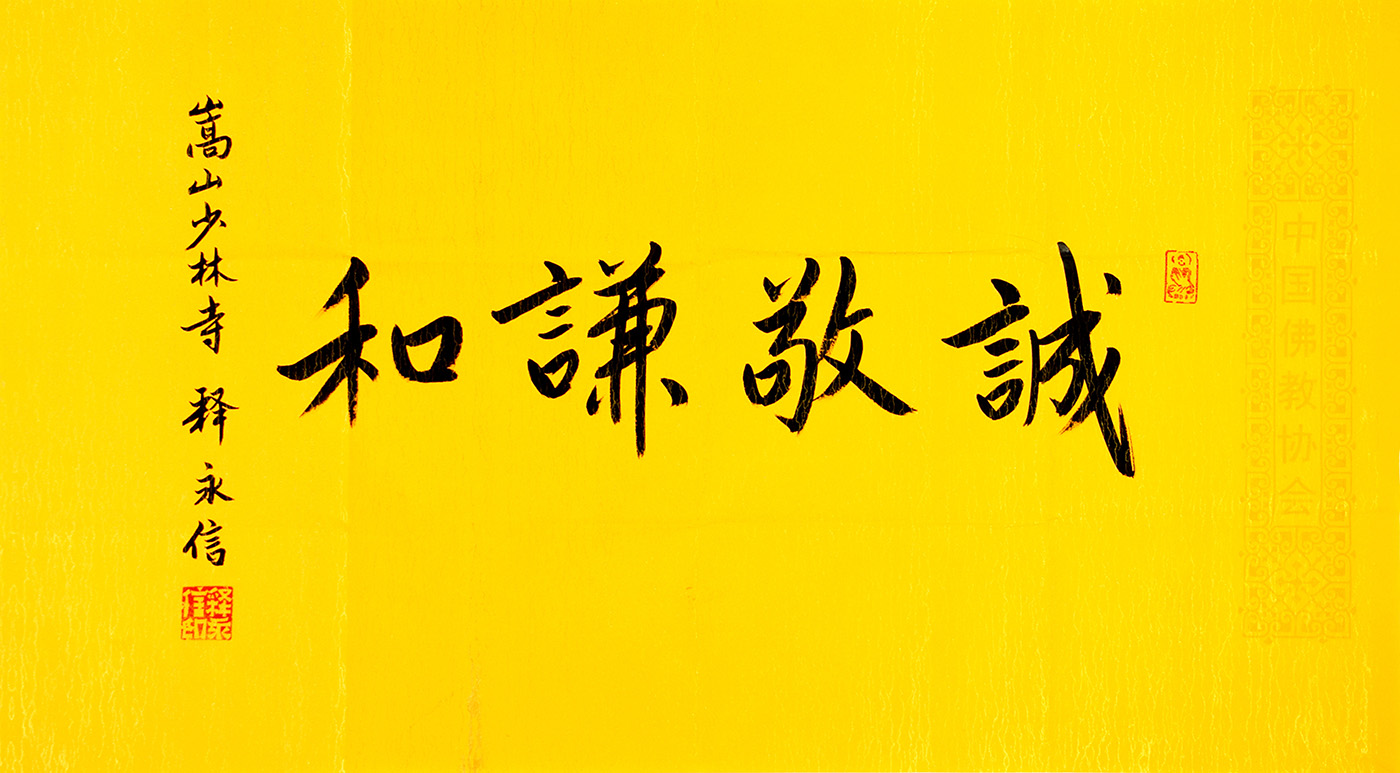 誠敬謙和
嵩山少林寺 释永信
中国佛教协会
释永信印